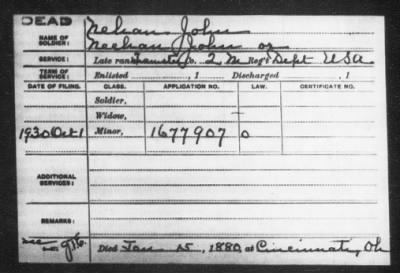 DEAD
NAME OF SOLDIER: Nehan John
Neehan, John or
SERVICE: Late rank Teamster, Co. 2 M Reg't Dept USA
TERM OF SERVICE: Enlisted , 1 Discharged , 1
DATE OF FILING. CLASS. APPLICATION NO. LAW. CERTIFICATE NO.
Soldier,
Widow,
1930 Oct 1 Minor, 1677907 O
ADDITIONAL SERVICES:
REMARKS:
Died Jan 15, 1880, at Cincinnati, Oh